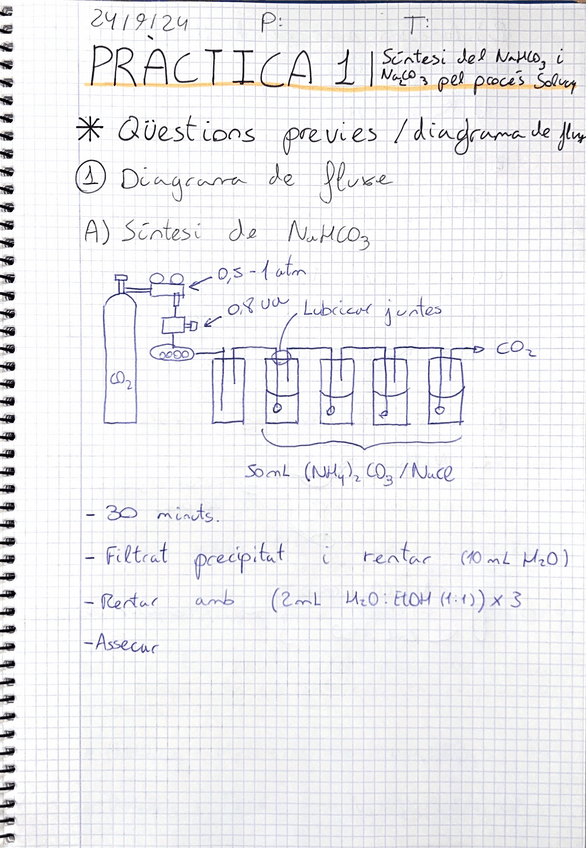 24/9/24 P: T:
PRÀCTICA 1 | Síntesi del NaHCO₃ i
Na₂CO₃ pel procés Solvay
* Qüestions previes / diagrama de flux
① Diagrama de fluxe
A) Síntesi de NaHCO₃
0,5-1 atm
0,8 ua
Lubricar juntes
CO₂
CO₂
50 mL (NH₄)₂CO₃/NaCl
- 30 minuts.
- Filtrat precipitat i rentar (10 mL H₂O)
- Rentar amb (2mL H₂O:EtOH (1:1)) x 3
- Assecar